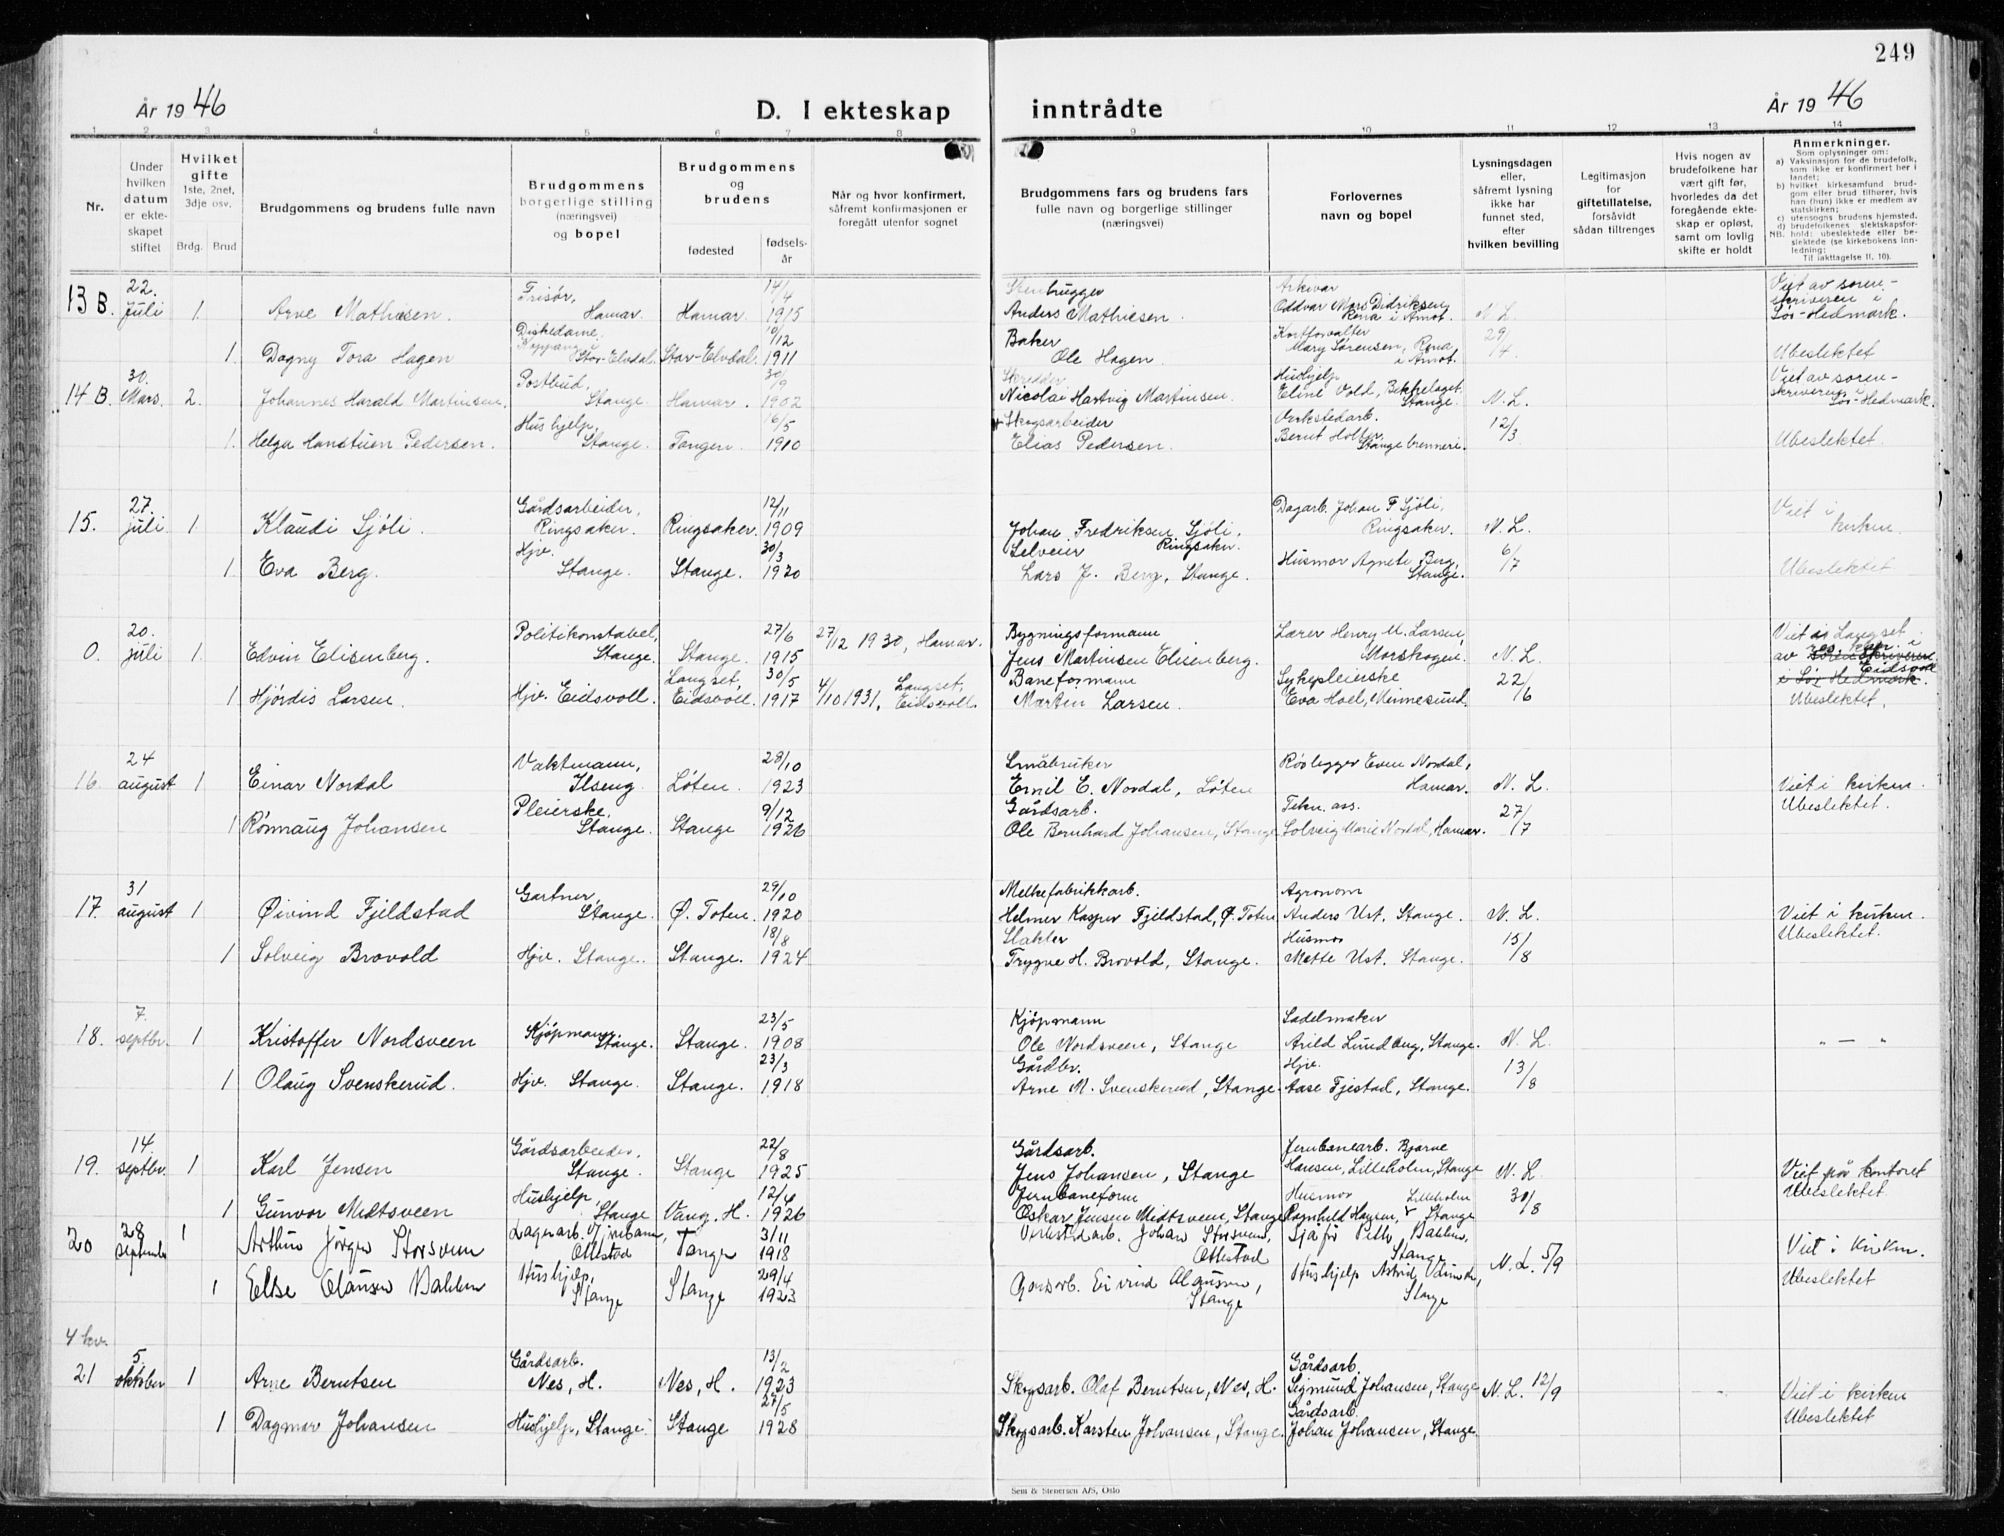 249
År 1946
D. I ekteskap
inntrådte
År 1946
1 2 3 4 5 6 7 8 9 10 11 12 13 14
Nr.
Under hvilken datum er ekteskapet stiftet
Hvilket gifte
1ste, 2net, 3dje osv.
Brdg. Brud
Brudgommens og brudens fulle navn
Brudgommens borgerlige stilling (næringsvei) og bopel
Brudgommens og brudens
fødested
fødselsår
Når og hvor konfirmert, såfremt konfirmasjonen er foregått utenfor sognet
Brudgommens fars og brudens fars fulle navn og borgerlige stillinger (næringsvei)
Forlovernes navn og bopel
Lysningsdagen eller, såfremt lysning ikke har funnet sted, efter hvilken bevilling
Legitimasjon for giftetillatelse, forsåvidt sådan tiltrenges
Hvis nogen av brudefolkene har vært gift før, hvorledes da det foregående ekteskap er opløst, samt om lovlig skifte er holdt
Anmerkninger.
Som oplysninger om:
a) Vaksinasjon for de brudefolk, som ikke er konfirmert her i landet;
b) hvilket kirkesamfund brudgom eller brud tilhører, hvis han (hun) ikke er medlem av statskirken;
c) utensogns brudens hjemsted.
d) brudefolkenes slektskapsforhold: ubeslektede eller beslektede (se kirkebokens innledning;
NB.
Til iakttagelse II, 10).
13 B. 22. Juli 1. Arne Mathisen. Frisør, Hamar. Hamar. 14/4 1915 Stenbrugger Anders Mathiesen. Arkivar Oddvar Didriksen, Rena i Åmot. N. L. Viet av sorenskriveren i Sør-Hedmark.
1. Dagny Tora Hagen Diskedame, Koppang i Stor-Elvdal. Stor-Elvdal. 10/12 1911 Baker Ole Hagen. Kortforvalter Mary Sørensen, Rena i Åmot. 29/4 Ubeslektet
14 B. 30. Mars. 2. Johannes Harald Martinsen. Postbud, Stange. Hamar. 30/9 1902 Skredder Nicolai Hartvig Martinsen. Hushjelp Eline Vold, Bekkelaget Stange. N. L. Viet av sorenskriveren i Sør-Hedmark.
1. Helga Hanstuen Pedersen. Hushjelp, Stange. Tangen. 16/5 1910 Skogsarbeider Elias Pedersen. Verkstedarb. Bernt Holter Stange brenneri. 12/3 Ubeslektet.
15. 27. juli 1. Klaudi Sjöli. Gårdsarbeider, Ringsaker. Ringsaker. 12/11 1909 Johan Fredriksen Sjöli, Ringsaker. Dagarb. Johan F. Sjöli, Ringsaker. N. L. Viet i kirken.
1. Eva Berg. Hjv. Stange. Stange. 30/3 1920 Selveier Lars J. Berg, Stange. Husmor Agnete Berg, Stange. 6/7 Ubeslektet.
0. 20. juli 1. Edvin Elisenberg. Politikonstabel, Stange. Stange. 27/6 1915 27/12 1930, Hamar. Bygningsformann Jens Martinsen Elisenberg. Lærer Henry M. Larsen, Morskogen. N. L. Viet i Langset av res. kap. i Eidsvoll sorenskriveren i Sør Hedmark.
1 Hjördis Larsen. Hjv. Eidsvoll. Langset, Eidsvoll. 30/5 1917 4/10 1931, Langset, Eidsvoll. Baneformann Martin Larsen. Sykepleierske Eva Hoel, Minnesund. 22/6 Ubeslektet.
16. 24 august 1 Einar Nordal Vaktmann, Ilseng. Løten. 28/10 1923 Småbruker Emil E. Nordal, Løten Rørlegger Even Nordal, Hamar. N. L. Viet i kirken. Ubeslektet.
1 Rönnaug Johansen Pleierske, Stange. Stange 9/12 1926 Gårdsarb. Ole Bernhard Johansen, Stange Tekn. ass. Solveig Marie Nordal, Hamar. 27/7
17. 31 august 1 Øivind Fjeldstad Gartner, Stange. Ø. Toten. 29/10 1920 Melkefabrikkarb. Helmer Kasper Fjeldstad, Ø. Toten Agronom Anders Ust, Stange. N. L. Viet i kirken. Ubeslektet.
1 Solveig Brovold Hjv. Stange. Stange. 18/8 1924 Slakter Trygve H. Brovold, Stange. Husmor Mette Ust. Stange. 15/8
18. 7. septbr. 1 Kristoffer Nordsveen Kjøpmann, Stange. Stange. 23/5 1908 Kjøpmann Ole Nordsveen, Stange Sadelmaker Arild Lundberg, Stange. N. L. " — "
1 Olaug Svenskerud. Hjv. Stange. Stange. 23/3 1918 Gårdbr. Arne M. Svenskerud, Stange. Hjv. Aase Fjestad, Stange. 13/8
19. 14. septbr. 1 Karl Jensen Gårdsarbeider, Stange. Stange 22/8 1925 Gårdsarb. Jens Johansen, Stange Jernbanearb. Bjarne Hansen, Lilleholm, Stange N. L. Viet på kontoret Ubeslektet.
1 Gunvor Midtsveen Hushjelp, Stange Vang. H. 12/6 1926 Jernbaneform Oskar Jensen Midtsveen, Stange Husmor Ragnhild Hansen, Lilleholm Stange 30/8
20 28 september 1 Arthur Jörgen Storsveen Lagerarb. v/jernbanen, Ottestad Tangen 3/11 1918 Verkstedarb. Johan Storsveen, Ottestad Sjåfør Bakken, Stange N. L. 5/9 Viet i kirken.
1 Else Olausen Bakken Hushjelp, Stange Stange 29/4 1923 Gårdsarb. Eivind Olausen, Stange Hushjelp Astrid Stange Ubeslektet
4 kv.
21 5. oktober 1 Arne Berntsen Gårdsarb. Nes, H. Nes, H. 13/2 1923 Skogsarb. Olaf Berntsen, Nes, H. Gårdsarb. Sigmund Johansen, Stange N. L. 12/9 Viet i kirken
1 Dagmar Johansen Hushjelp, Stange. Stange 27/5 1928 Skogsarb. Karsten Johansen, Stange. Gårdsarb. Johan Johansen, Stange. Ubeslektet
Sem & Stenersen A/S, Oslo